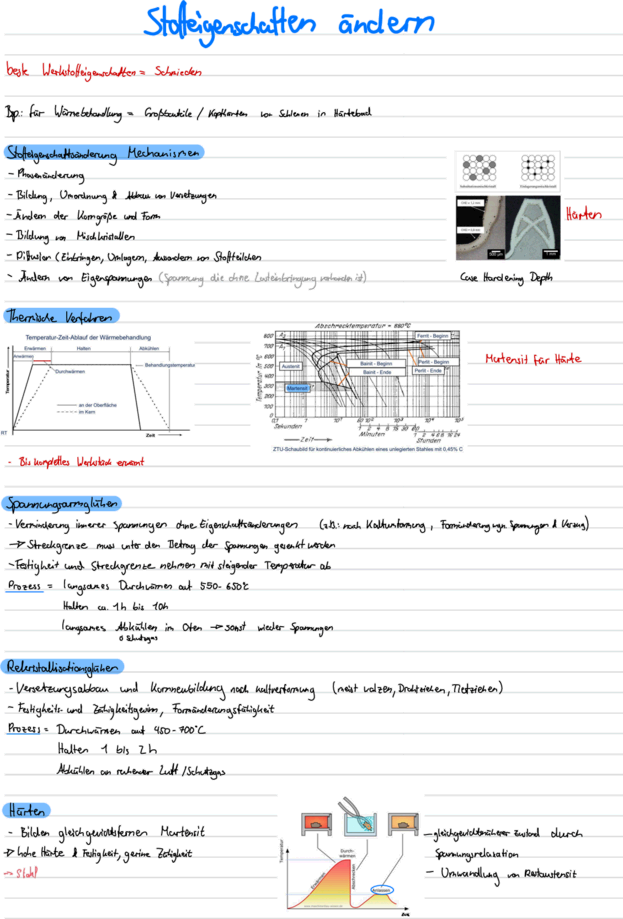 Stoffeigenschaften ändern
beste Werkstoffeigenschaften = Schmieden
Bsp: für Wärmebehandlung = Großbauteile / Kopfkanten von Schienen in Härtebad
Stoffeigenschaftsänderung Mechanismen
- Phasenänderung
- Bildung, Umordnung & Abbau von Versetzungen
- Ändern der Korngröße und Form
- Bildung von Mischkristallen
- Diffusion (Einbringen, Umlagern, Auswandern von Stoffteilchen
- Ändern von Eigenspannungen (Spannung die ohne Lasteinbringung vorhanden ist)
Härten
Case Hardening Depth
Thermische Verfahren
Temperatur-Zeit-Ablauf der Wärmebehandlung
Erwärmen Halten Abkühlen
Anwärmen
Behandlungstemperatur
Durchwärmen
an der Oberfläche
im Kern
Temperatur
RT
Zeit
Abschrecktemperatur = 880°C
Temperatur in °C
800
700
600
500
400
300
200
100
0
Ferrit - Beginn
Austenit
Bainit - Beginn
Bainit - Ende
Perlit - Beginn
Perlit - Ende
Martensit
Sekunden
Minuten
Stunden
Zeit
ZTU-Schaubild für kontinuierliches Abkühlen eines unlegierten Stahles mit 0,45% C
Martensit für Härte
- Bis komplettes Werkstück erwärmt
Spannungsarmglühen
- Verminderung innerer Spannungen ohne Eigenschaftsänderungen (z.B.: nach Kaltumformung, Formänderung wgn. Spannungen & Verzug)
-> Streckgrenze muss unter den Betrag der Spannungen gesenkt werden
- Festigkeit und Streckgrenze nehmen mit steigender Temperatur ab
Prozess = langsames Durchwärmen auf 550-650°C
Halten ca. 1h bis 10h
langsames Abkühlen im Ofen -> sonst wieder Spannungen
o Schutzgas
Rekristallisationsglühen
- Versetzungsabbau und Kornneubildung nach Kaltverformung (meist walzen, Drahtziehen, Tiefziehen)
- Festigkeits- und Zähigkeitsgewinn, Formänderungsfähigkeit
Prozess = Durchwärmen auf 450-700°C
Halten 1 bis 2h
Abkühlen an ruhender Luft / Schutzgas
Härten
- Bilden gleichgewichtsfernen Martensit
-> hohe Härte & Festigkeit, geringe Zähigkeit
-> Stahl
Temperatur
Erwärmen
Durch-
wärmen
Abschrecken
Anlassen
Zeit
- gleichgewichtsnäherer Zustand durch
Spannungsrelaxation
- Umwandlung von Restaustensit